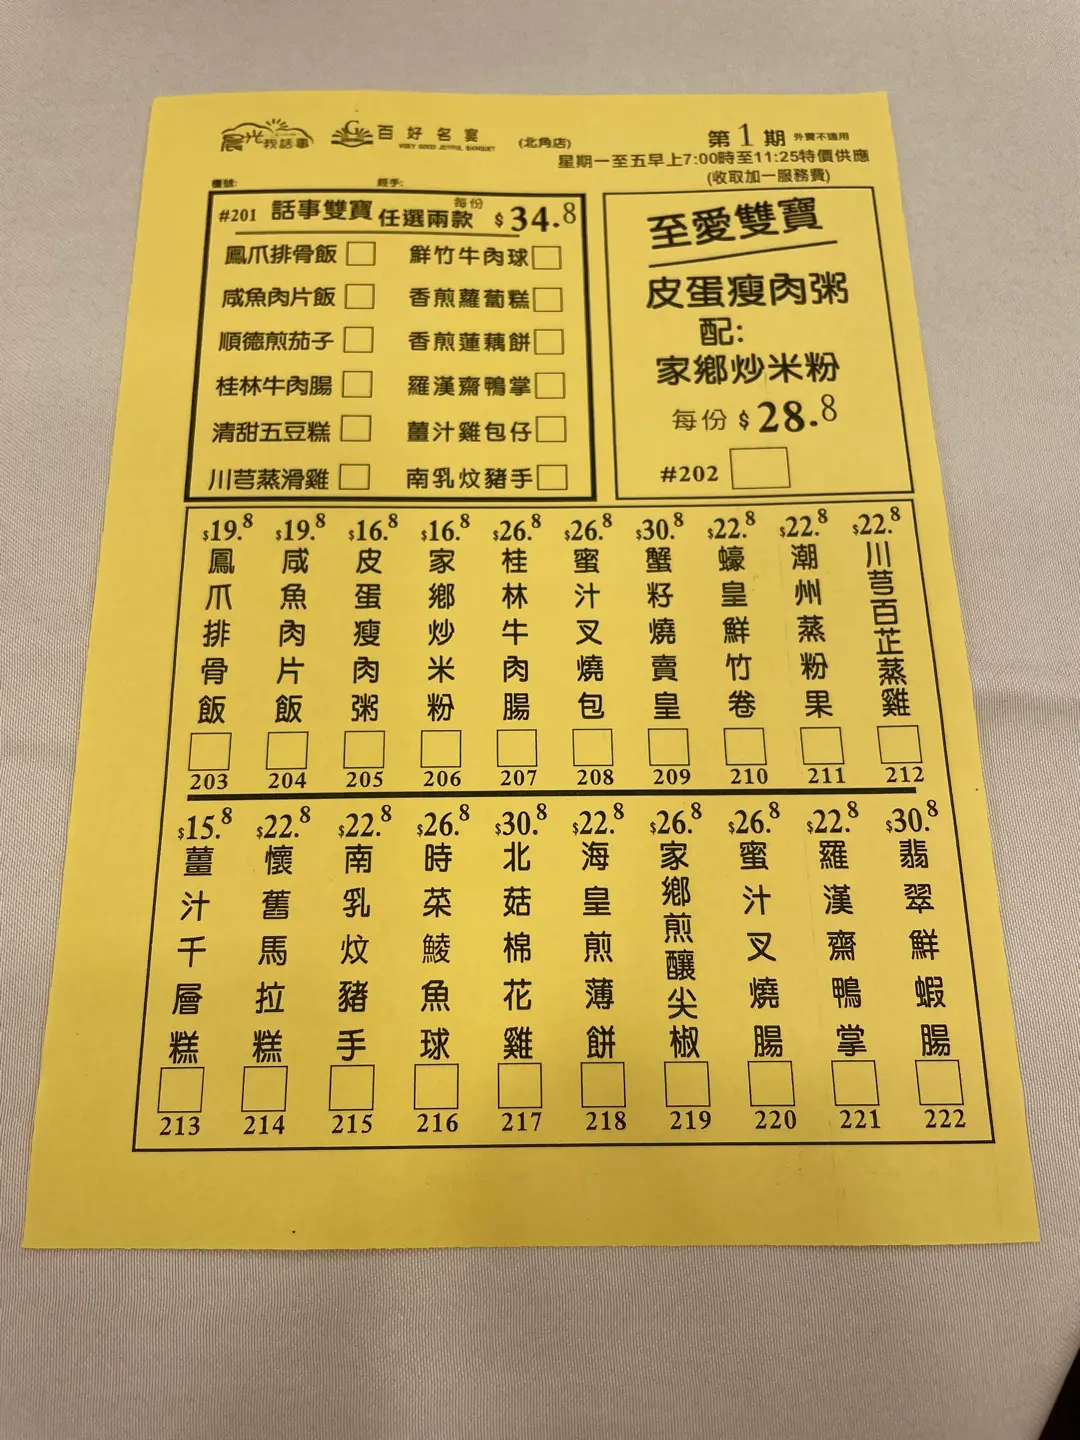 晨光我話事
百好名宴
VERY GOOD JOYFUL BANQUET
(北角店)
第1期 外賣不適用
星期一至五早上7:00時至11:25特價供應
(收取加一服務費)
檯號: 經手:
#201 話事雙寶 任選兩款 每份 $34.8
鳳爪排骨飯 鮮竹牛肉球
咸魚肉片飯 香煎蘿蔔糕
順德煎茄子 香煎蓮藕餅
桂林牛肉腸 羅漢齋鴨掌
清甜五豆糕 薑汁雞包仔
川芎蒸滑雞 南乳炆豬手
至愛雙寶
皮蛋瘦肉粥
配:
家鄉炒米粉
每份 $28.8
#202
$19.8 鳳爪排骨飯 203
$19.8 咸魚肉片飯 204
$16.8 皮蛋瘦肉粥 205
$16.8 家鄉炒米粉 206
$26.8 桂林牛肉腸 207
$26.8 蜜汁叉燒包 208
$30.8 蟹籽燒賣皇 209
$22.8 蠔皇鮮竹卷 210
$22.8 潮州蒸粉果 211
$22.8 川芎百芷蒸雞 212
$15.8 薑汁千層糕 213
$22.8 懷舊馬拉糕 214
$22.8 南乳炆豬手 215
$26.8 時菜鯪魚球 216
$30.8 北菇棉花雞 217
$22.8 海皇煎薄餅 218
$26.8 家鄉煎釀尖椒 219
$26.8 蜜汁叉燒腸 220
$22.8 羅漢齋鴨掌 221
$30.8 翡翠鮮蝦腸 222